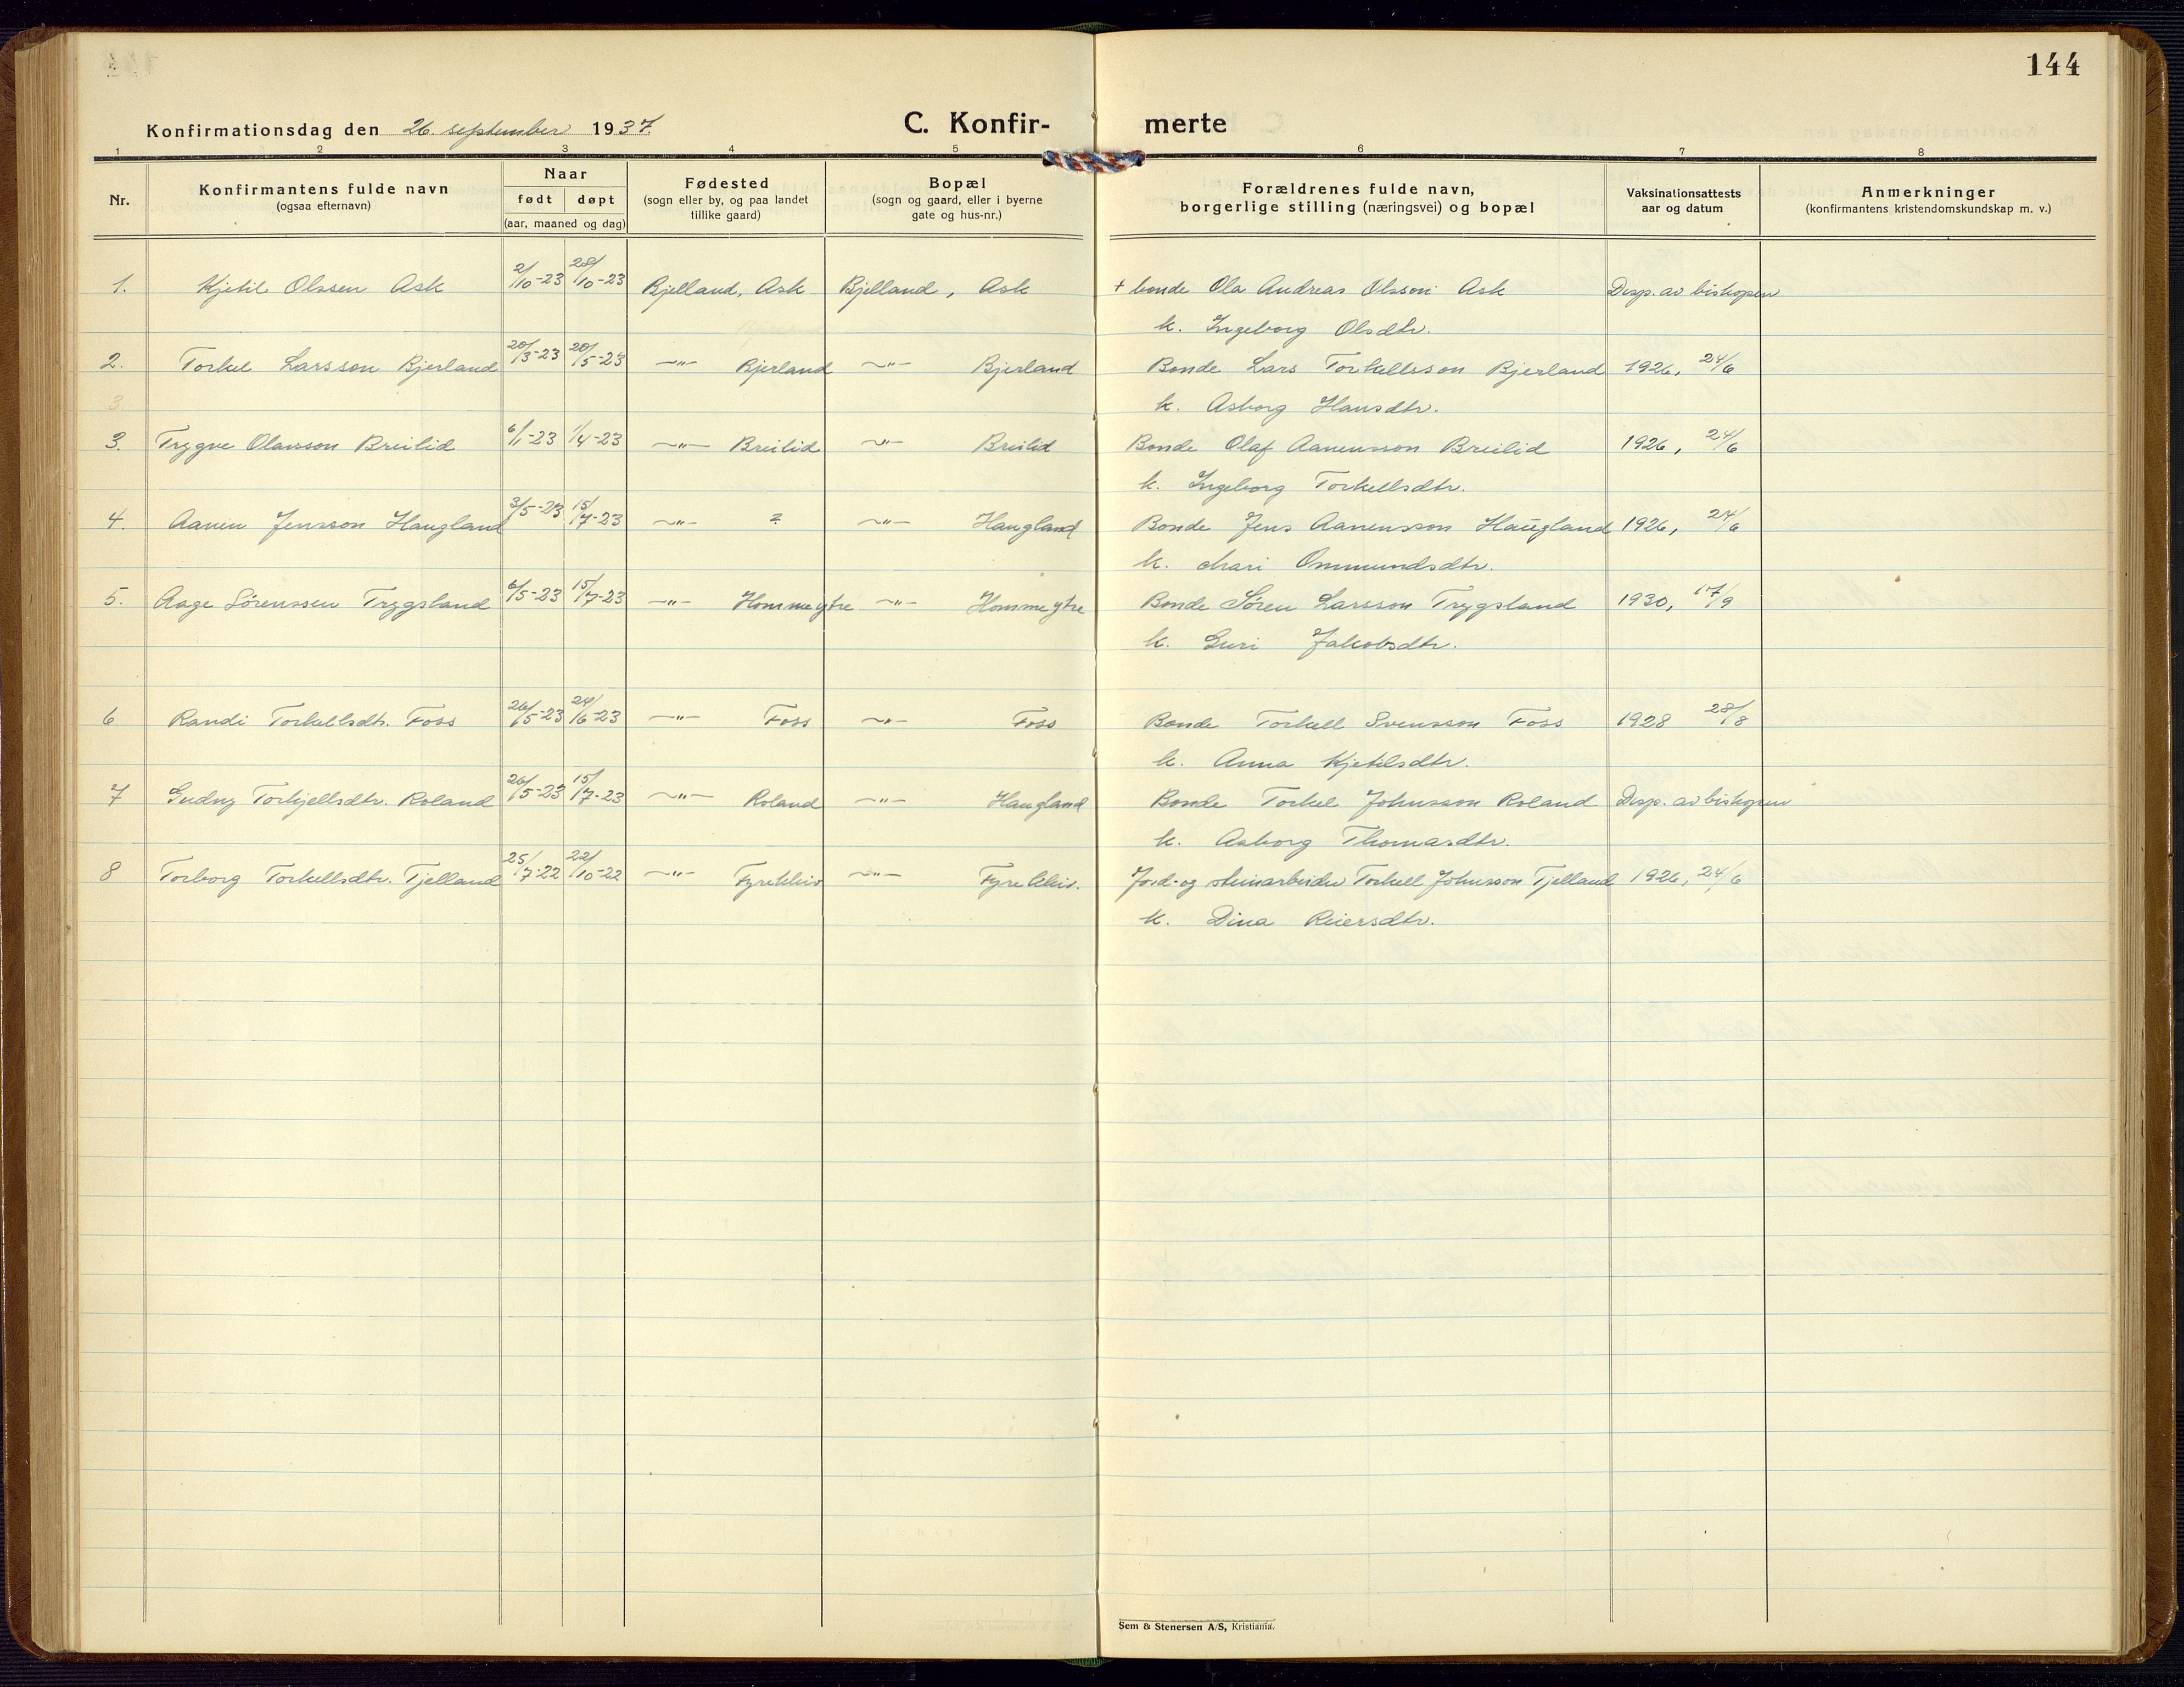 144
Konfirmationsdag den 26. september 1937. C. Konfir- merte
1 2 3 4 5 6 7 8
Nr. Konfirmantens fulde navn (ogsaa efternavn) Naar født døpt (aar, maaned og dag) Fødested (sogn eller by, og paa landet tillike gaard) Bopæl (sogn og gaard, eller i byerne gate og hus-nr.) Forældrenes fulde navn, borgerlige stilling (næringsvei) og bopæl Vaksinationsattests aar og datum Anmerkninger (konfirmantens kristendomskundskap m. v.)
1. Kjetil Olssen Ask 2/10-23 28/10-23 Bjelland, Ask Bjelland, Ask + bonde Ola Andreas Olsson Ask Disp. av biskopen
k. Ingeborg Olsdtr.
2. Torkel Larsson Bjerland 20/3-23 20/5-23 —"— Bjerland —"— Bjerland Bonde Lars Torkellsson Bjerland 1926, 24/6
3 k. Asborg Hansdtr.
3. Trygve Olavsson Breilid 6/1-23 1/4-23 —"— Breilid —"— Breilid Bonde Olaf Aanensson Breilid 1926, 24/6
k. Ingeborg Torkellsdtr.
4. Aanen Jensson Haugland 3/5-23 15/7-23 —"— ? —"— Haugland Bonde Jens Aanensson Haugland 1926, 24/6
k. Mari Ommundsdtr.
5. Aage Sørenssen Trygsland 6/5-23 15/7-23 —"— Homme ytre —"— Homme ytre Bonde Søren Larsson Trygsland 1930, 17/9
k. Guri Jakobsdtr.
6 Randi Torkellsdtr. Foss 26/5-23 24/6-23 —"— Foss —"— Foss Bonde Torkell Svensson Foss 1928 28/8
k. Anna Kjetilsdtr.
7 Gudny Torkjellsdtr. Roland 26/5-23 15/7-23 —"— Roland —"— Haugland Bonde Torkel Johnsson Roland Disp. av biskopen
k. Asborg Thomasdtr.
8 Torborg Torkellsdtr. Tjelland 25/7-22 22/10-22 —"— Fyrekleiv —"— Fyrekleiv. Jord- og steinarbeider Torkell Johnsson Tjelland 1926, 24/6
k. Dina Reiersdtr.
Sem & Stenersen A/S, Kristiania.